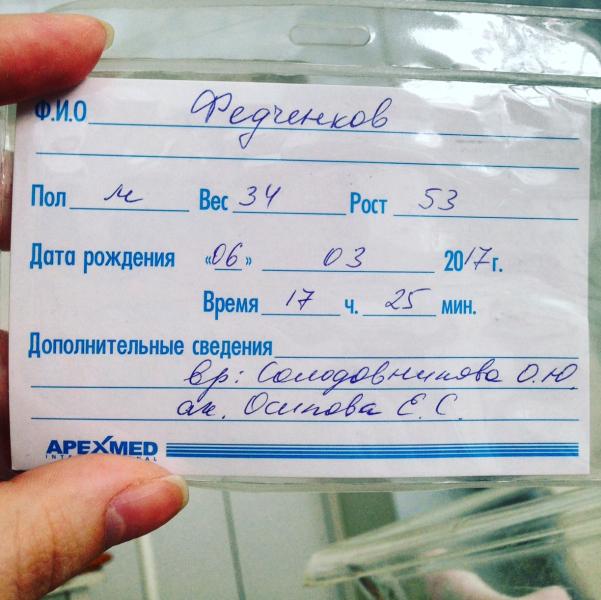 Ф.И.О Федченков
Пол м Вес 34 Рост 53
Дата рождения «06» 03 2017г.
Время 17 ч. 25 мин.
Дополнительные сведения
вр: Солодовникова О.Ю.
ак. Осипова Е.С.
APEXMED
INTERNATIONAL